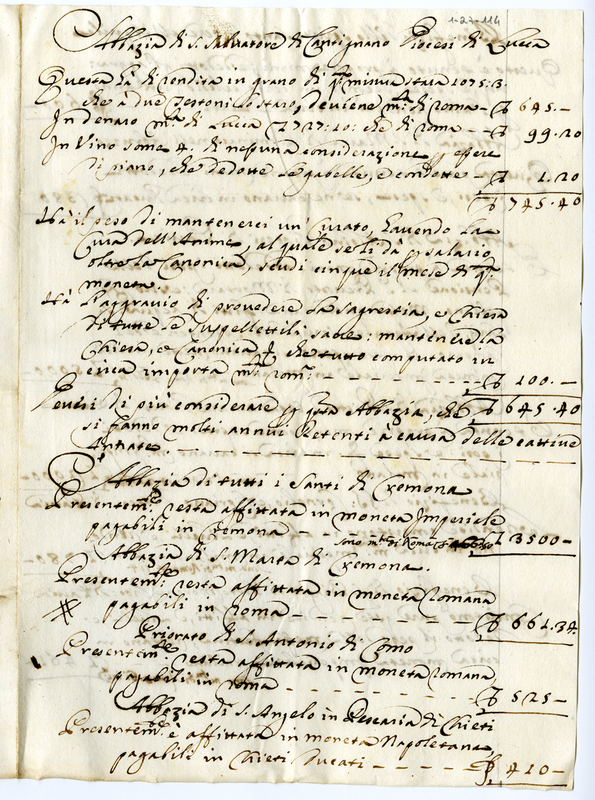 1-27-114
Abbazia di S. Salvatore di Cantignano Diocesi di Lucca
Questa hà di rendita in grano di q.ta misura staia 1075:3.
che à due Testoni lo staro, deviene m.ta di Roma - 645. -
In denaro m.ta di Lucca 727:10: che di Roma - 99.20
In Vino some 4. di nessuna considerazione p essere
di piano, che dedotte le gabelle, e condotte - 1.20
745.40
Hà il peso di mantenerci un' Curato, havendo la
Cura dell' Anime, al quale se li dà p salario,
oltre la Canonica, scudi cinque il mese di q.ta
moneta.
Hà l'aggravio di provedere la Sagrestia, e Chiesa
di tutte le suppellettili sacre: mantenere la
Chiesa, e Canonica che tutto computato in
circa importa m.ta Rom.a - - - - - - 100. -
Devesi di più considerare p q.sta Abbazia, che 645.40
si fanno molti annui Retenti à causa delle cattive
Annate. - - - - - - - - - -
Abbazia di tutti i Santi di Cremona
Presentem.te resta affittata in moneta Imperiale
pagabili in Cremona - - - - 3500 -
sono m.ta di Roma
Abbazia di S. Marta di Cremona.
Presentem.te: resta affittata in moneta Romana
pagabili in Roma - - - - - - - 661.34.
Priorato di S. Antonio di Como
Presentem.te resta affittata in moneta Romana,
pagabili in Roma - - - - - - - 525 -
Abbazia di S. Angelo in Pescaria di Chieti
Presentem.te è affittata in moneta Napoletana,
pagabili in Chieti Ducati - - - - - 410 -